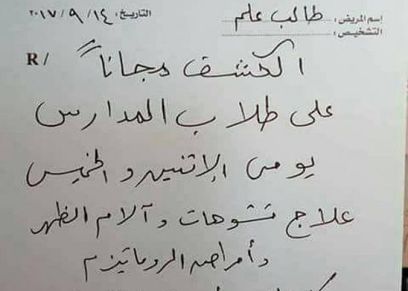 إسم المريض: طالب علم التاريخ: ٢٠١٧/٩/١٤
التشخيص:
R/ الكشف مجاناً
على طلاب المدارس
يومى الإثنين و الخميس
علاج تشوهات وآلام الظهر
وأمراض الروماتيزم